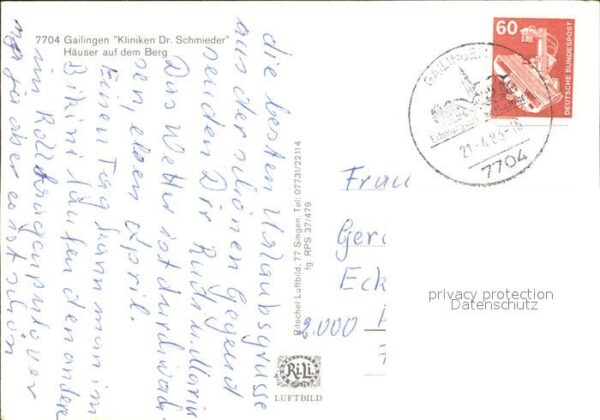 7704 Gailingen "Kliniken Dr. Schmieder"
Häuser auf dem Berg
die besten Urlaubsgrüsse
aus der schönen Gegend
senden Dir Rudi u. Marin
Das Wetter ist durchwach
sen, eben April.
Einen Tag kann man im
Bikini laufen den andern
im Rollkragenpullover
na ja aber es ist schön
Ritschel Luftbild, 77 Singen, Tel: 07731/22114
fg. RPS 37/479
RiLi
LUFTBILD
60
DEUTSCHE BUNDESPOST
GAILINGEN
21.-4.83-18
7704
Frau
Ger
Eck
2.000
privacy protection
Datenschutz